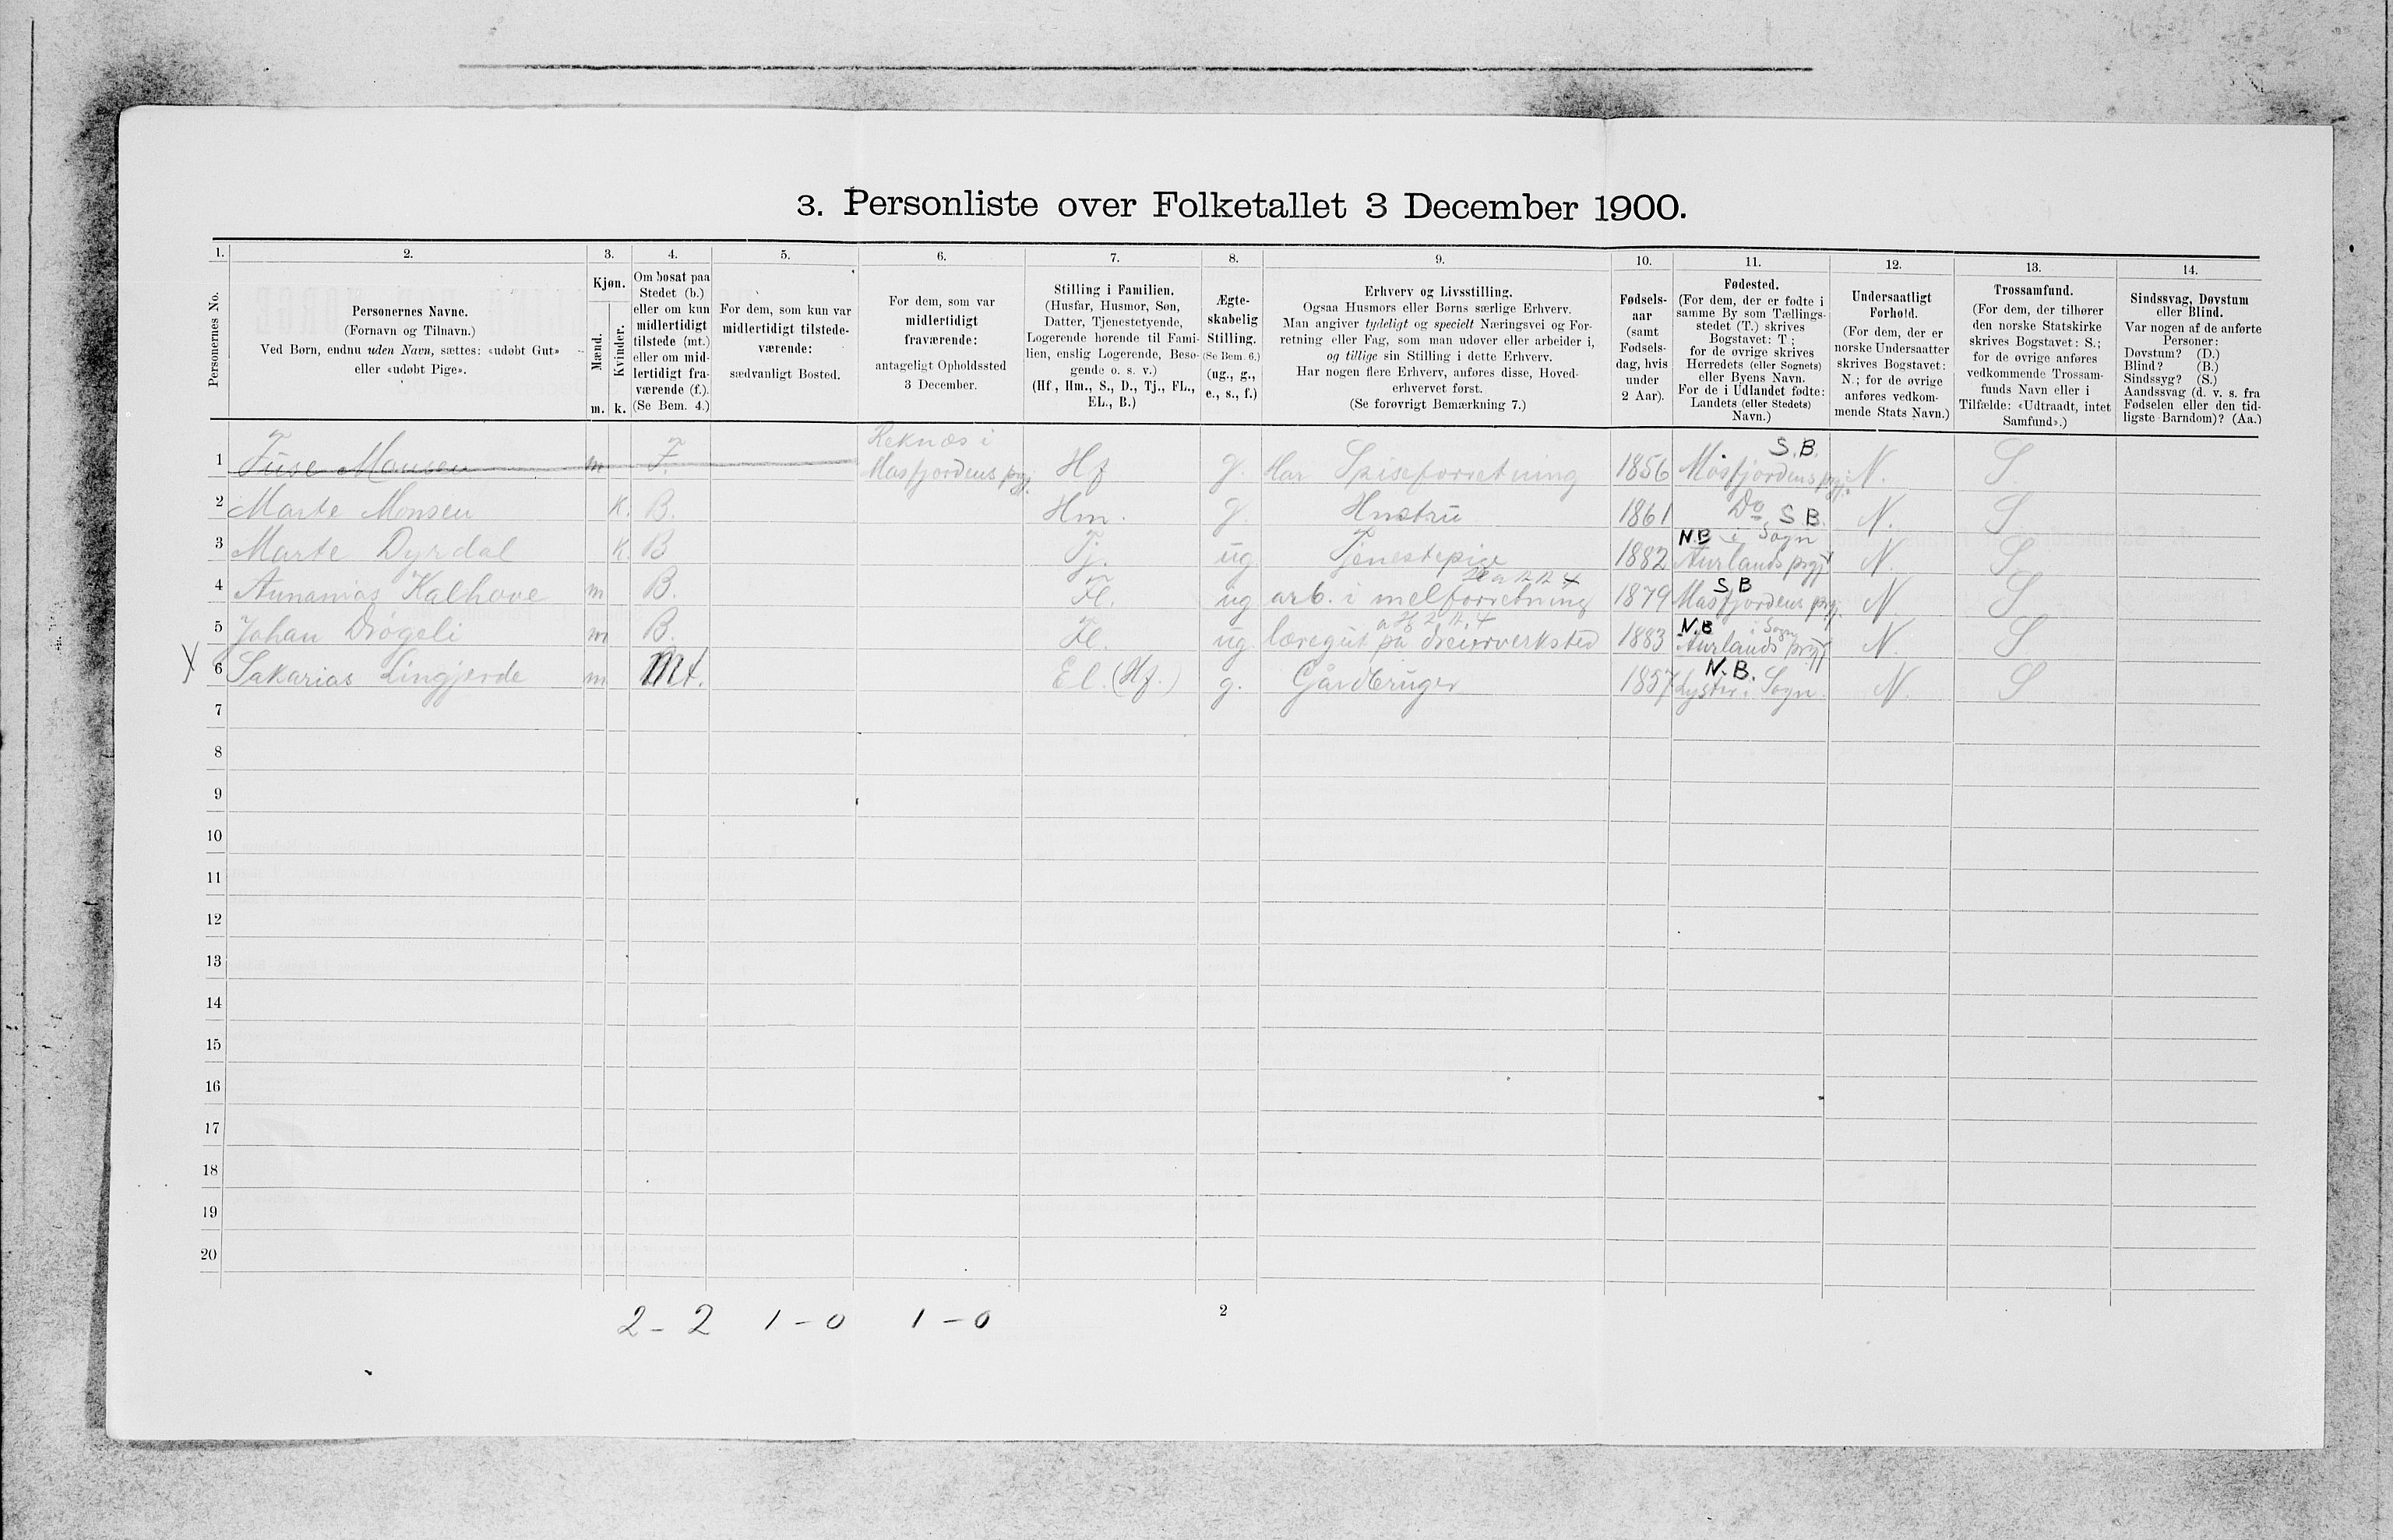 3. Personliste over Folketallet 3 December 1900.
1. 2. 3. 4. 5. 6. 7. 8. 9. 10. 11. 12. 13. 14.
Personernes No.
Personernes Navne.
(Fornavn og Tilnavn.)
Ved Børn, endnu uden Navn, sættes: «udøbt Gut»
eller «udøbt Pige».
Kjøn.
Mænd.
m.
Kvinder.
k.
Om bosat paa
Stedet (b.)
eller om kun
midlertidigt
tilstede (mt.)
eller om mid-
lertidigt fra-
værende (f.).
(Se Bem. 4.)
For dem, som kun var
midlertidigt tilstede-
værende:
sædvanligt Bosted.
For dem, som var
midlertidigt
fraværende:
antageligt Opholdssted
3 December.
Stilling i Familien.
(Husfar, Husmor, Søn,
Datter, Tjenestetyende,
Logerende hørende til Fami-
lien, enslig Logerende, Besø-
gende o. s. v.)
(Hf., Hm., S., D., Tj., FL.,
EL., B.)
Ægte-
skabelig
Stilling.
(Se Bem. 6.)
(ug., g.,
e., s., f.)
Erhverv og Livsstilling.
Ogsaa Husmors eller Børns særlige Erhverv.
Man angiver tydeligt og specielt Næringsvei og For-
retning eller Fag, som man udøver eller arbeider i,
og tillige sin Stilling i dette Erhverv.
Har nogen flere Erhverv, anføres disse, Hoved-
erhvervet først.
(Se forøvrigt Bemærkning 7.)
Fødsels-
aar
(samt
Fødsels-
dag, hvis
under
2 Aar).
Fødested.
(For dem, der er fødte i
samme By som Tællings-
stedet (T.) skrives
Bogstavet: T ;
for de øvrige skrives
Herredets (eller Sognets)
eller Byens Navn.
For de i Udlandet fødte:
Landets (eller Stedets)
Navn.)
Undersaatligt
Forhold.
(For dem, der er
norske Undersaatter
skrives Bogstavet:
N.; for de øvrige
anføres vedkom-
mende Stats Navn.)
Trossamfund.
(For dem, der tilhører
den norske Statskirke
skrives Bogstavet: S.;
for de øvrige anføres
vedkommende Trossam-
funds Navn eller i
Tilfælde: «Udtraadt, intet
Samfund».)
Sindssvag, Døvstum
eller Blind.
Var nogen af de anførte
Personer:
Døvstum? (D.)
Blind? (B.)
Sindssyg? (S.)
Aandssvag (d. v. s. fra
Fødselen eller den tid-
ligste Barndom)? (Aa.)
Reknæs i S.B.
1 Monsen m F. Masfjordens prgj. Hf g. Har Spiseforretning 1856 Masfjordens prgj. N. S
2 Marte Monsen k. B. Hm. g. Hustru 1861 Do S B. N. S
N.B i Sogn
3 Marte Dyrdal k. B Tj. ug Tjenestepige 1882 Aurlands prgj N. S
S B
4 Annanias Kalhove m B. Fl. ug arb. i melforretning 1879 Masfjordens prgj. N. S
N.B i Sogn
5 Johan B. m Fl. ug. læregut på dreierverksted 1883 Aurlands prgj N. S
N.B.
6 Sakarias Lingjerde m Mt. El. (Hf.) g. Gårdbruger 1857 Lyster i Sogn. N. S
7
8
9
10
11
12
13
14
15
16
17
18
19
20
2 - 2 1 - 0 1 - 0
2